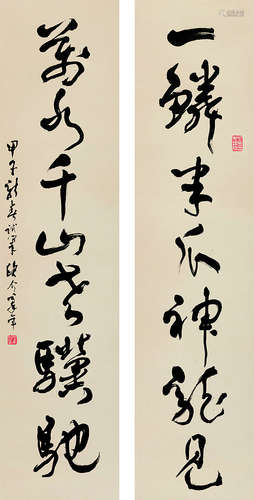 一鳞半爪神龙见
万水千山老骥驰
甲子新春试笔